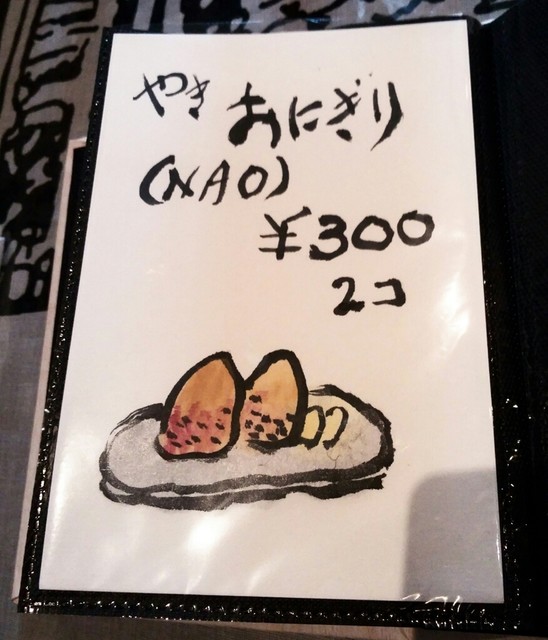 やき おにぎり
(NAO)
¥300
2コ